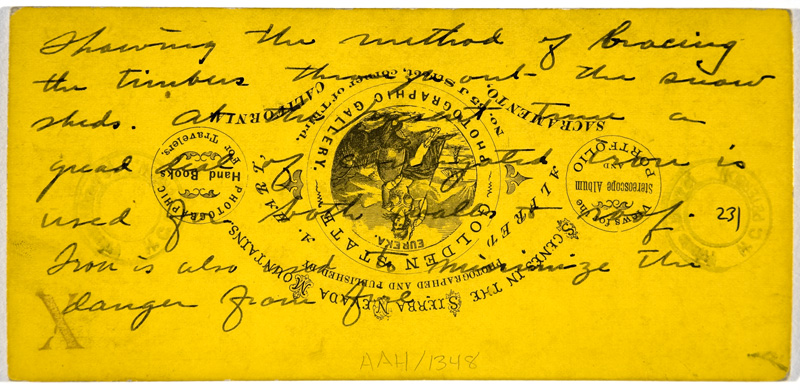 Showing the method of bracing
the timbers throughout the snow
sheds. At the present time a
great deal of corrugated iron is
used for both walls & roof. 231
Iron is also used to minimize the
danger from fire.
X
AAH/1348
SCENES IN THE SIERRA NEVADA MOUNTAINS,
PHOTOGRAPHED AND PUBLISHED BY
ALFRED A. HART,
GOLDEN STATE PHOTOGRAPHIC GALLERY.
EUREKA.
No. 65 J Street, corner of Third,
SACRAMENTO, CALIFORNIA
Views for the
Stereoscope Album
AND
PORTFOLIO
PHOTOGRAPHIC
Hand Books
For Travelers.